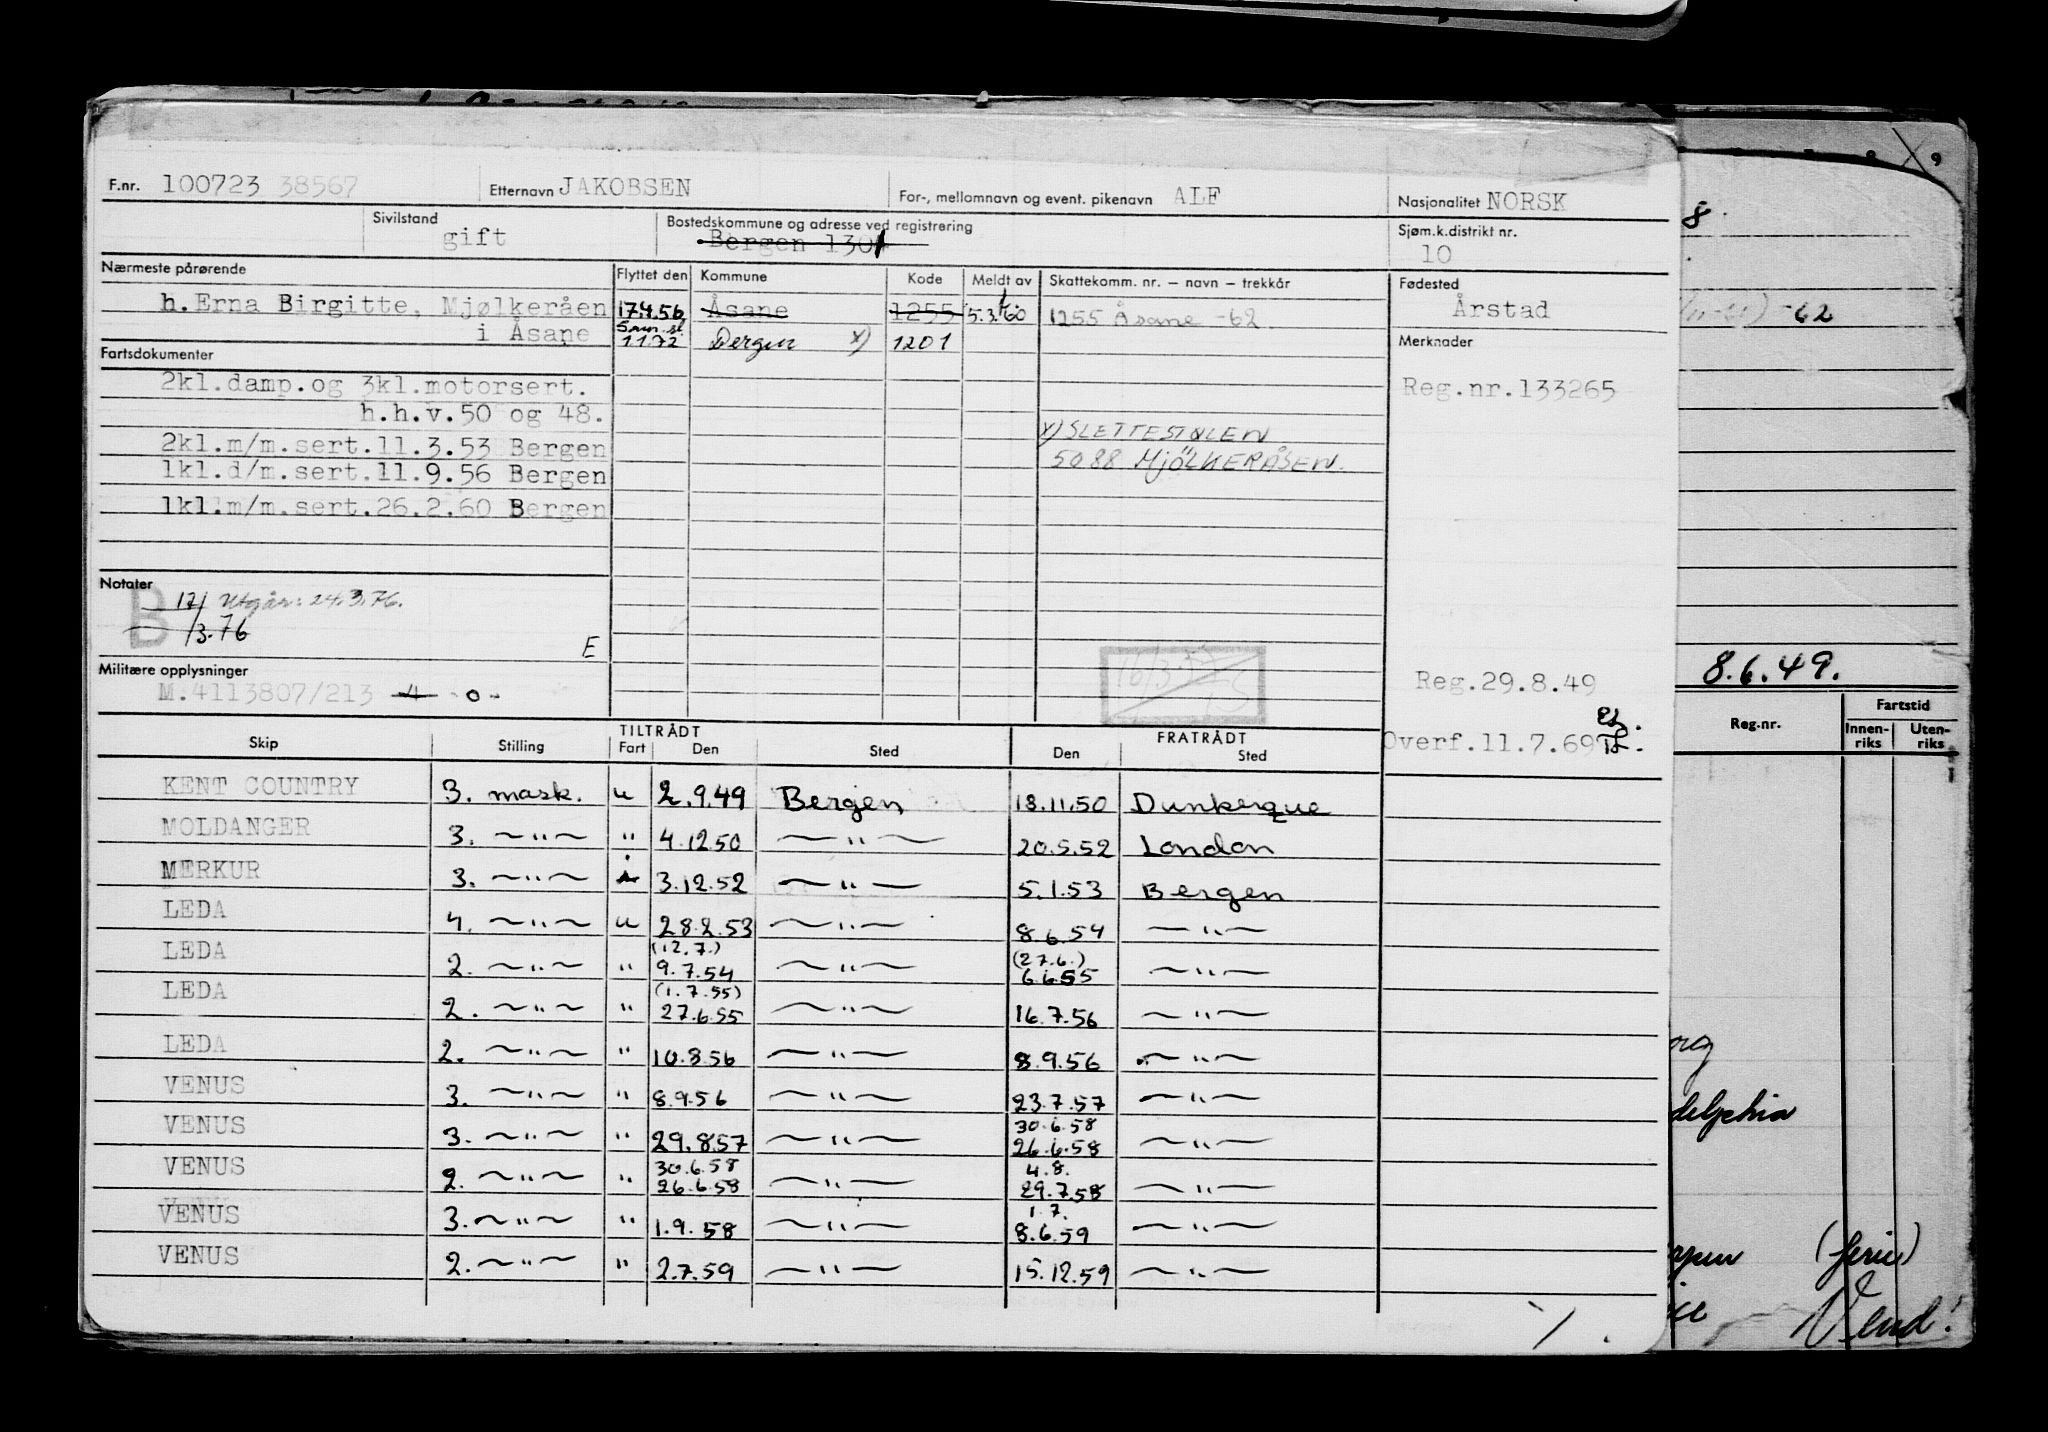 F.nr. 100723 38567 Etternavn JAKOBSEN For-, mellomnavn og event. pikenavn ALF Nasjonalitet NORSK
Sivilstand gift Bostedskommune og adresse ved registrering Bergen 1301 Sjøm.k.distrikt nr. 10
Nærmeste pårørende Flyttet den Kommune Kode Meldt av Skattekomm. nr. – navn – trekkår Fødested
h.Erna Birgitte, Mjølkeråen 17.4.56 Åsane 1255 5.3.60 1255 Åsane -62 Årstad
i Åsane 1.1.72 Bergen x) 1201
Fartsdokumenter Merknader
2kl.damp.og 3kl.motorsert. Reg.nr.133265
h.h.v.50 og 48.
2kl.m/m.sert.11.3.53 Bergen x) SLETTESTØLEN
1kl.d/m.sert.11.9.56 Bergen 5088 MJÖLKERÅSEN.
1kl.m/m.sert.26.2.60 Bergen
Notater
B 17/ Utgår: 24.3.76.
/3.76
E
Militære opplysninger
M.4113807/213 4 -0- Reg.29.8.49
Overf.11.7.69
TILTRÅDT FRATRÅDT
Skip Stilling Fart Den Sted Den Sted
KENT COUNTRY 3. mask. u 2.9.49 Bergen 18.11.50 Dunkerque
MOLDANGER 3. —"— " 4.12.50 —"— 20.5.52 London
MERKUR 3. —"— i 3.12.52 —"— 5.1.53 Bergen
LEDA 4. —"— u 28.2.53 —"— 8.6.54 —"—
(12.7.) (27.6.)
LEDA 2. —"— " 9.7.54 —"— 6.6.55 —"—
(1.7.55)
LEDA 2. —"— " 27.6.55 —"— 16.7.56 —"—
LEDA 2. —"— " 10.8.56 —"— 8.9.56 —"—
VENUS 3. —"— " 8.9.56 —"— 23.7.57 —"—
30.6.58
VENUS 3. —"— " 29.8.57 —"— 26.6.58 —"—
30.6.58 4.8.
VENUS 2. —"— " 26.6.58 —"— 29.7.58 —"—
1.7.
VENUS 3. —"— " 1.9.58 —"— 8.6.59 —"—
VENUS 2. —"— " 2.7.59 —"— 15.12.59 —"—
9
8.
-62
8.6.49.
Reg.nr. Fartstid
Innen-riks Uten-riks
delphia
(ferie)
Vend!